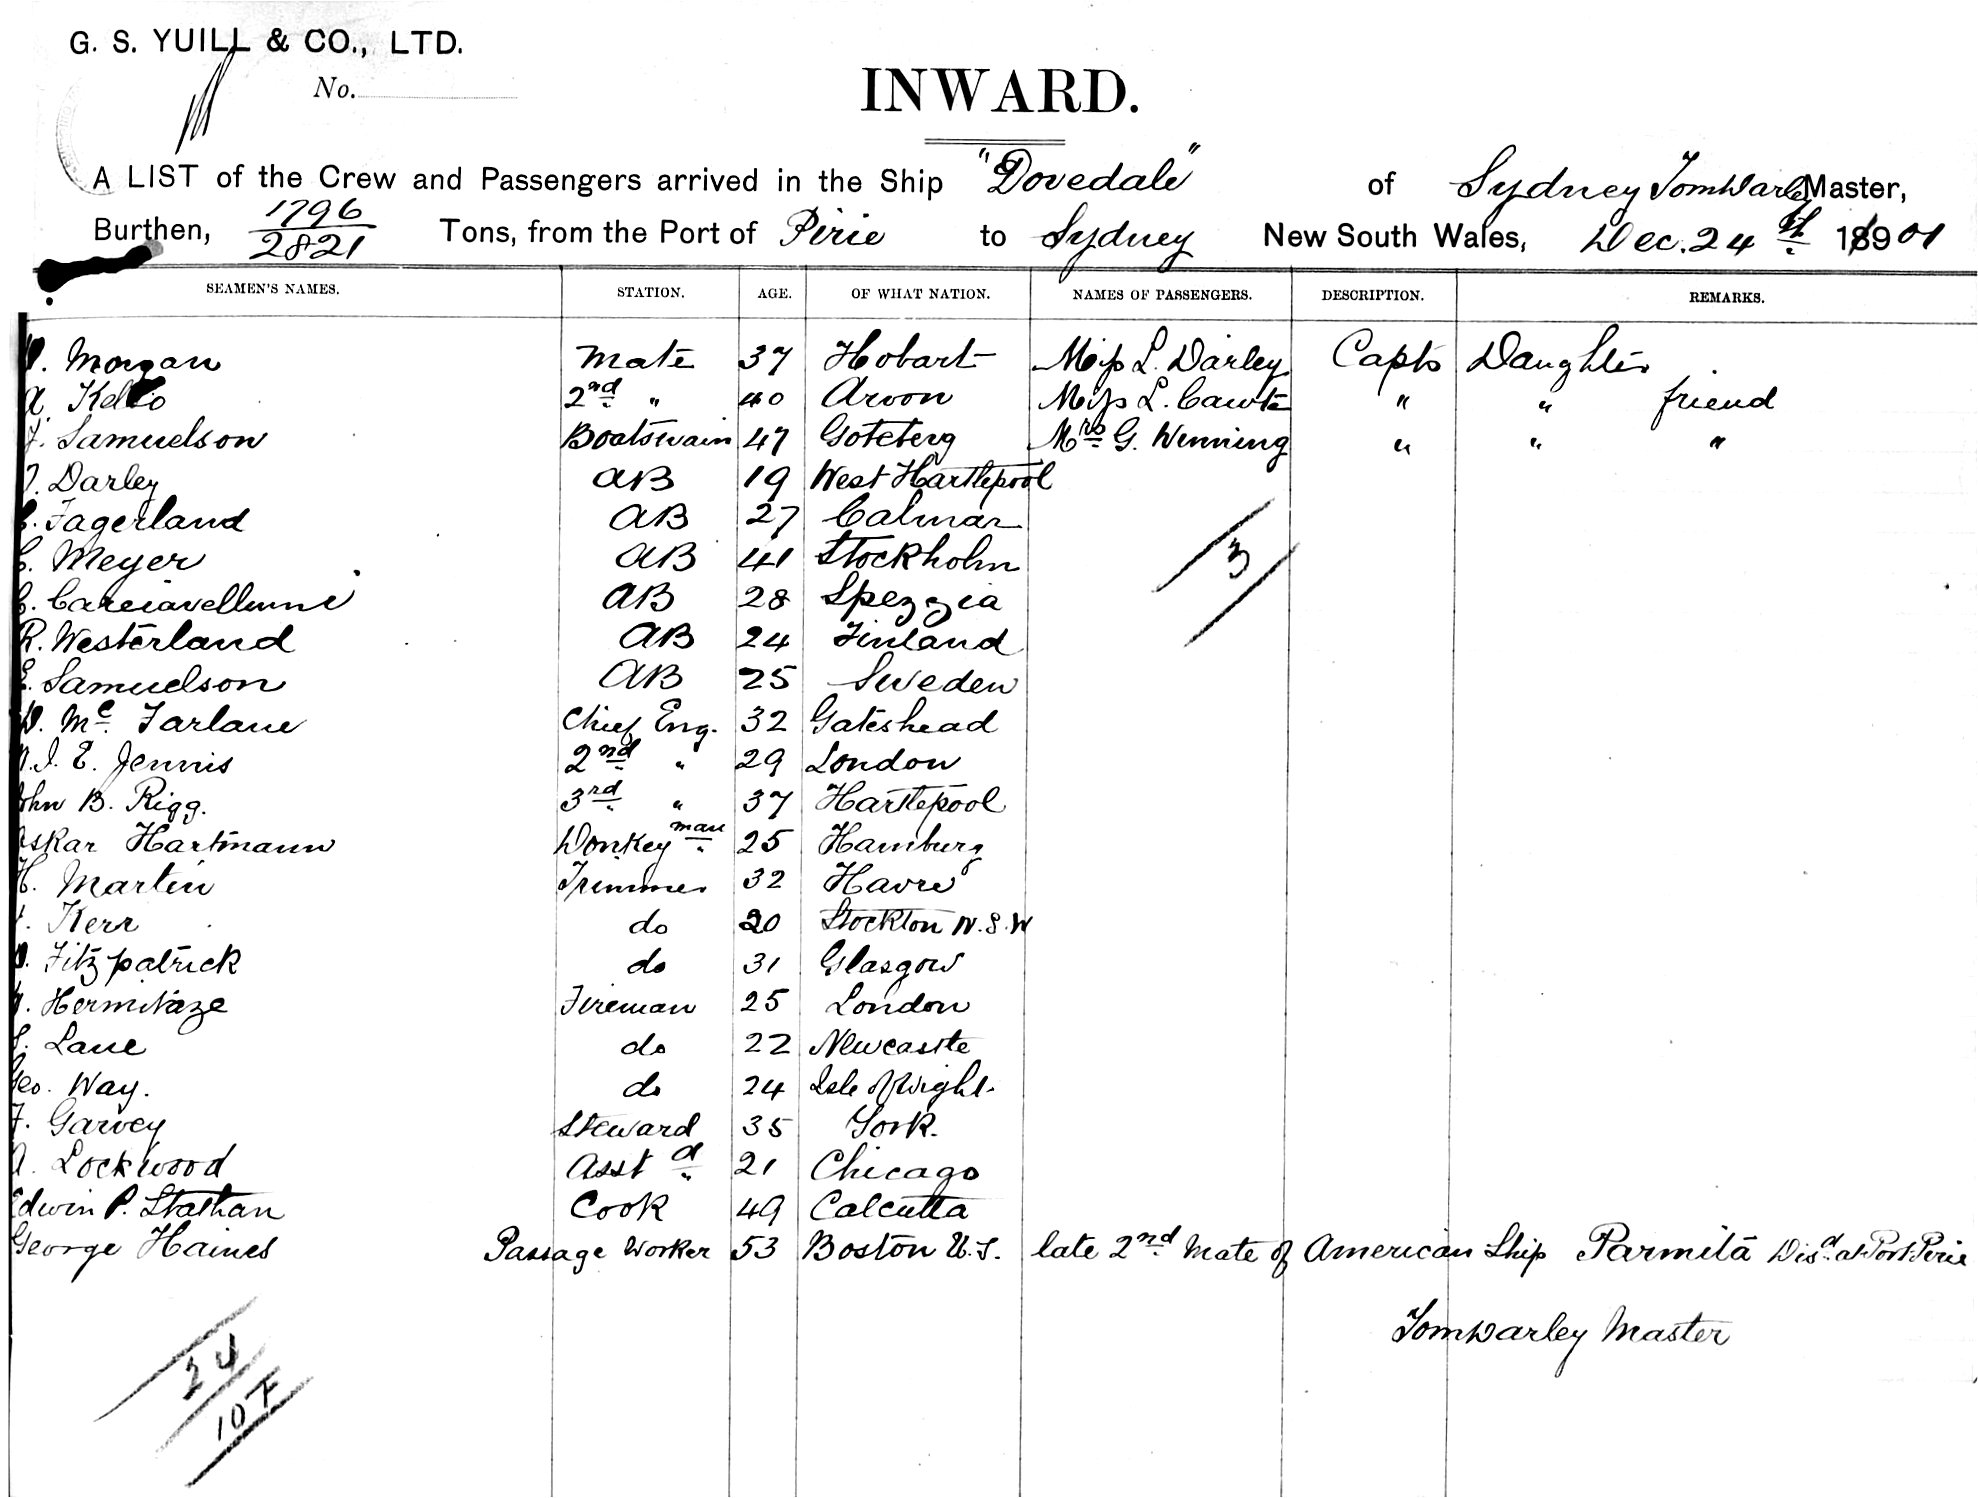 G. S. YUILL & CO., LTD.
No.
INWARD.
A LIST of the Crew and Passengers arrived in the Ship "Dovedale" of Sydney Tom Darley Master,
Burthen, 1796/2821 Tons, from the Port of Pirie to Sydney New South Wales, Dec. 24th 1901
SEAMEN'S NAMES. STATION. AGE. OF WHAT NATION. NAMES OF PASSENGERS. DESCRIPTION. REMARKS.
Morgan Mate 37 Hobart Miss L. Darley Capts Daughter
A. Kelso 2nd " 40 Arvon Miss L. Cawte " " friend
F. Samuelson Boatswain 47 Goteberg Mrs G. Winning " " "
Darley AB 19 West Hartlepool
Fagerland AB 27 Calmar
C. Meyer AB 41 Stockholm
C. AB 28 Spezzia
R. Westerland AB 24 Finland
E. Samuelson AB 25 Sweden
D. Mc Farlane Chief Eng. 32 Gateshead
J. E. Jennis 2nd " 29 London
John B. Rigg. 3rd " 37 Hartlepool
Oskar Hartmann Donkey man 25 Hamburg
H. Martin Trimmer 32 Havre
Kerr do 20 Stockton N.S.W
Fitzpatrick do 31 Glasgow
Hermitaze Fireman 25 London
Lane do 22 Newcastle
Geo. Way. do 24 Isle of Wight.
F. Garvey Steward 35 York.
A. Lockwood Asst d " 21 Chicago
Edwin P. Stathan Cook 49 Calcutta
George Haines Passage Worker 53 Boston U.S. late 2nd Mate of American Ship Parmita Disd at Port Pirie
3
Tom Darley Master
24
10 F